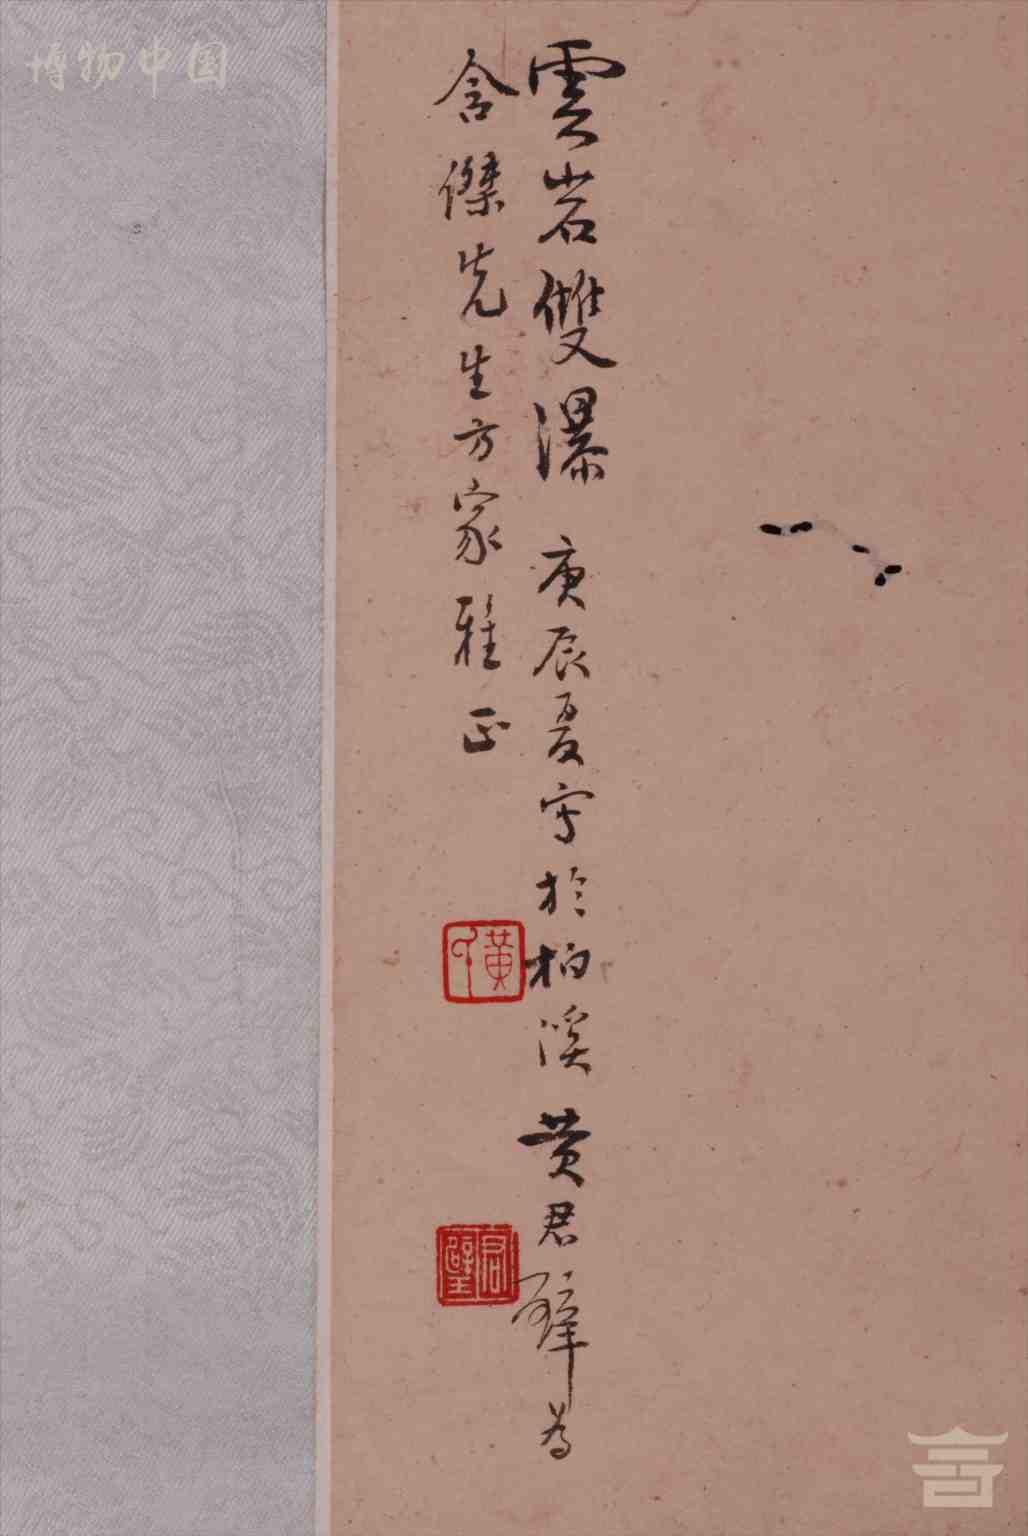 雲岩雙瀑 庚辰夏寫於柏溪 黃君璧爲
含傑先生方家雅正
黃
君璧
博物中国